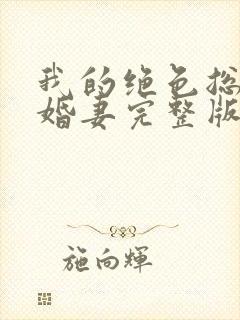 我的绝色总
婚妻完整版
施向輝